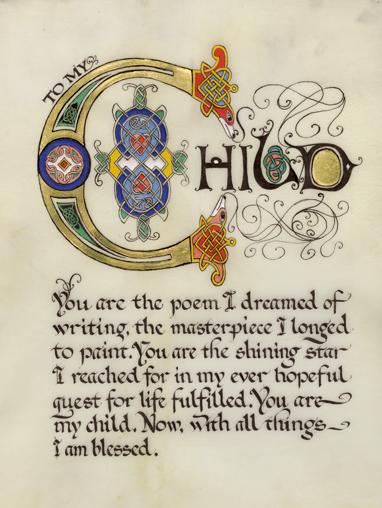 TO MY
CHILD
You are the poem I dreamed of
writing, the masterpiece I longed
to paint. You are the shining star
I reached for in my ever hopeful
quest for life fulfilled. You are
my child. Now, with all things
I am blessed.